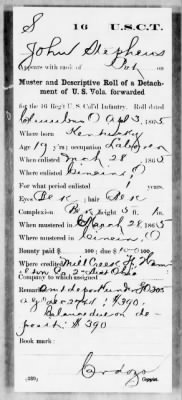 S 16 U.S.C.T.
John Stephens
Appears with rank of Pvt on
Muster and Descriptive Roll of a Detach-
ment of U. S. Vols. forwarded
for the 16 Reg't U. S. Col'd Infantry. Roll dated
Columbus O Apr 3, 1865
Where born Kentucky
Age 19 y'rs; occupation Laborer
When enlisted Mch 28, 1865
Where enlisted Cincin, O
For what period enlisted 1 years.
Eyes Black; hair Black
Complexion Black; height 5 ft. in.
When mustered in March 28, 1865
Where mustered in Cincin, O
Bounty paid $ 100; due $ 100
Where credited Mill Creek Tp Ham-
ilton Co. 2nd Dist Ohio
Company to which assigned
Remarks: Amt deposited under
Balance due on de-
posit $390
Book mark:
Copyist.